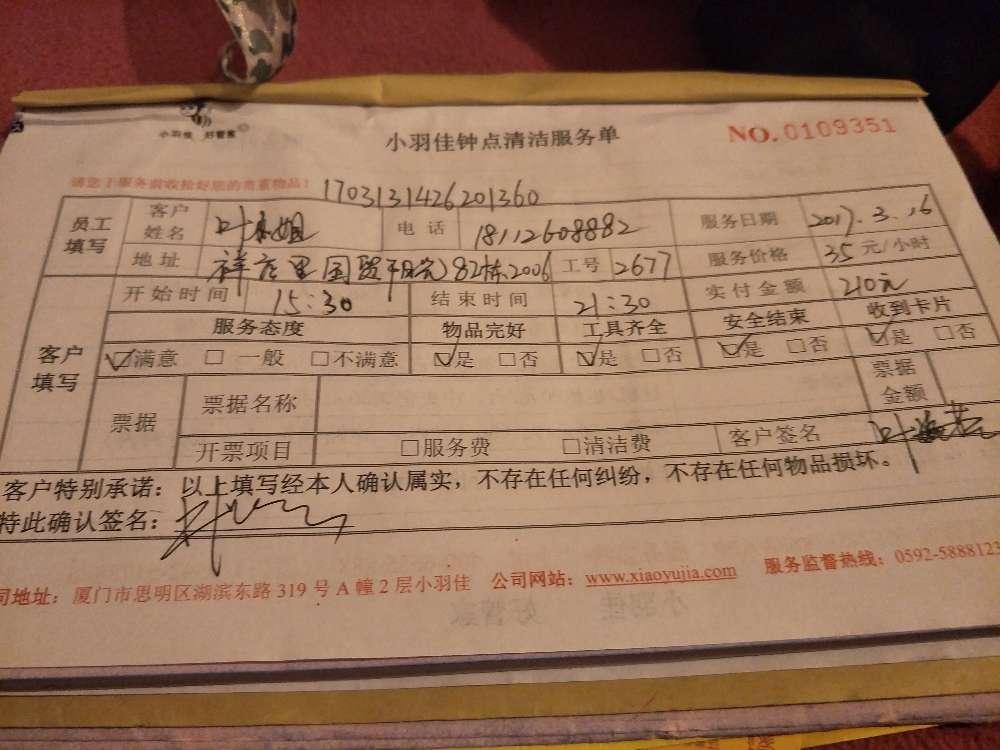 小羽佳 好管家
小羽佳钟点清洁服务单
NO.0109351
请您于服务前收拾好您的贵重物品!
1703131426201360
员工填写 客户姓名 叶小姐 电话 18112608882 服务日期 2017.3.16
地址 国贸 82栋2006 工号 2677 服务价格 35元/小时
客户填写 开始时间 15:30 结束时间 21:30 实付金额 210元
服务态度 物品完好 工具齐全 安全结束 收到卡片
☑满意 □一般 □不满意 ☑是 □否 ☑是 □否 ☑是 □否 ☑是 □否
票据 票据名称 票据金额
开票项目 □服务费 □清洁费 客户签名
客户特别承诺：以上填写经本人确认属实，不存在任何纠纷，不存在任何物品损坏。
特此确认签名：
司地址：厦门市思明区湖滨东路319号A幢2层小羽佳 公司网站：www.xiaoyujia.com 服务监督热线：0592-5888123